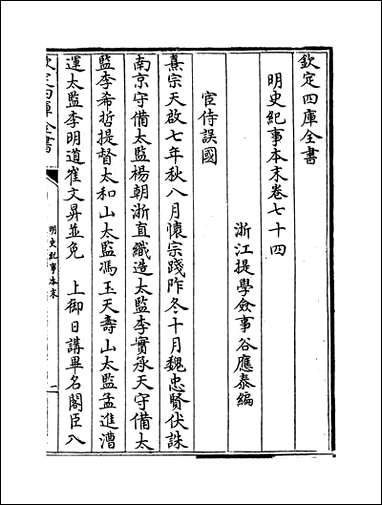 欽定四庫全書
明史紀事本末卷七十四
浙江提學僉事谷應泰編
宦侍誤國
熹宗天啟七年秋八月懷宗踐阼冬十月魏忠賢伏誅
南京守備太監楊朝浙直織造太監李實承天守備太
監李希哲提督太和山太監馮玉天壽山太監孟進漕
運太監李明道崔文昇並免　上御日講畢名閣臣入
欽定四庫全書
明史紀事本末